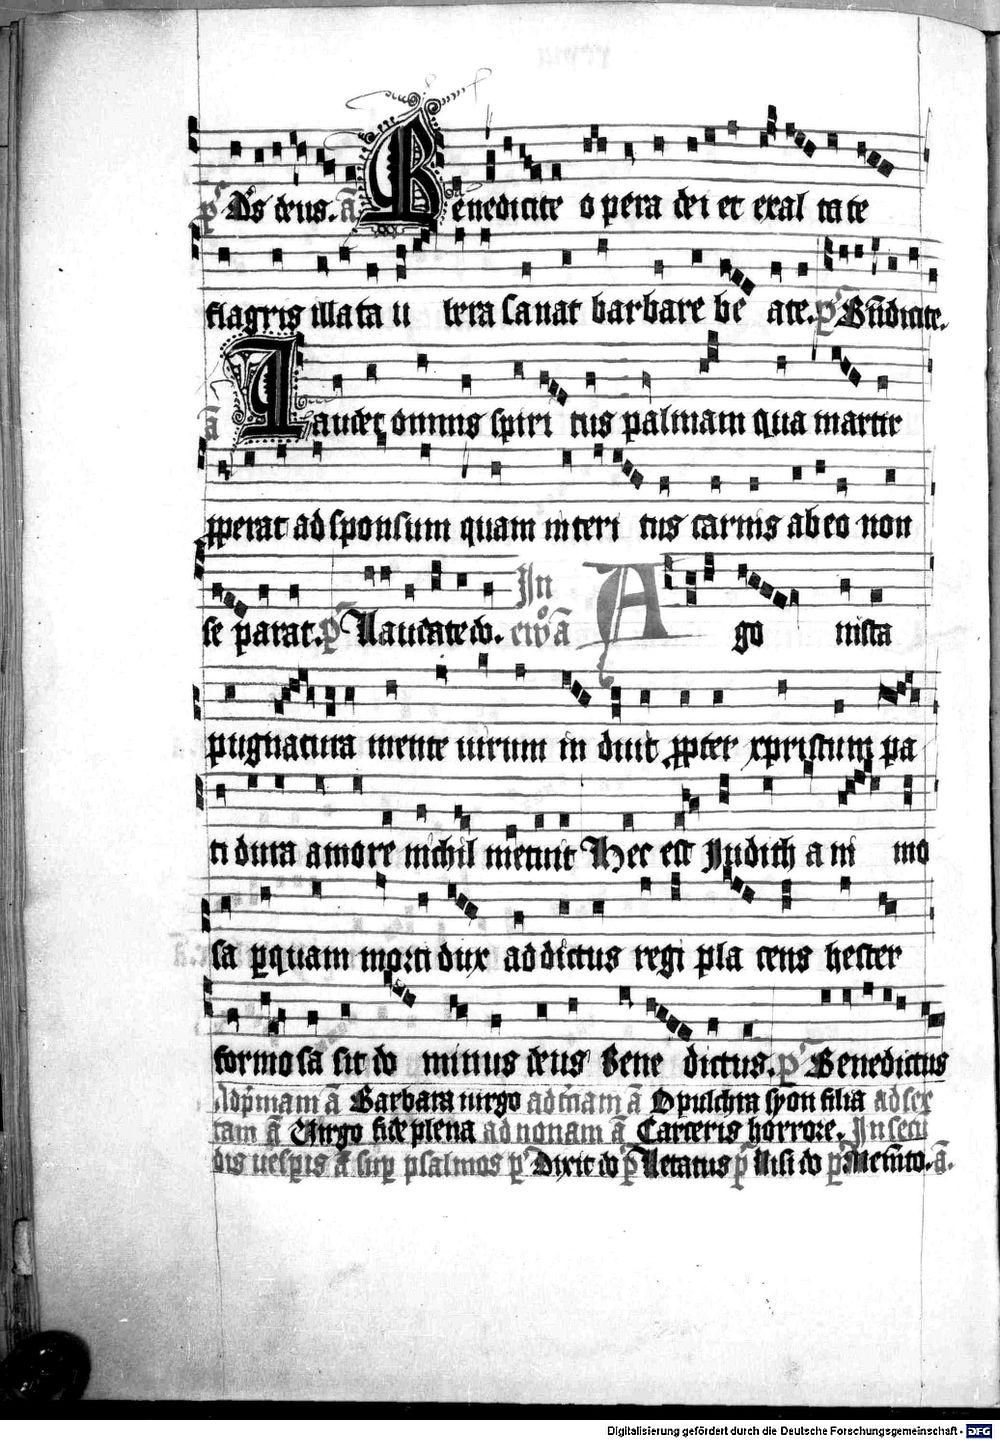 p̄s D̄s deus. ā Benedicite opera dei et exal tate
flagris illata u lcera sanat barbare be ate. p̄s Bn̄dicite.
ā Laudet omnis spiri tus palmam qua martir
ꝓperat ad sponsum quam interi tus carnis ab eo non
se parat. p̄s Laudate do. In ewā A go nista
pugnatura mente uirum in duit ꝓpter xpristum pa
ti dura amore nichil metuit Hec est Judith a ni mo
sa ꝑquam morti dux addictus regi pla cens hester
formosa sit do minus deus Bene dictus. p̄s Benedictus
Ad p̄mam ā Barbara uirgo ad tc̄iam ā O pulchra syon filia ad sex
tam ā Uirgo fide plena ad nonam ā Carceris horrore. In secū
dis uesp̄is ā sup̄ psalmos p̄s Dixit do p̄s Letatus p̄s Nisi do p̄s Mem̄to. ā.
Digitalisierung gefördert durch die Deutsche Forschungsgemeinschaft - DFG